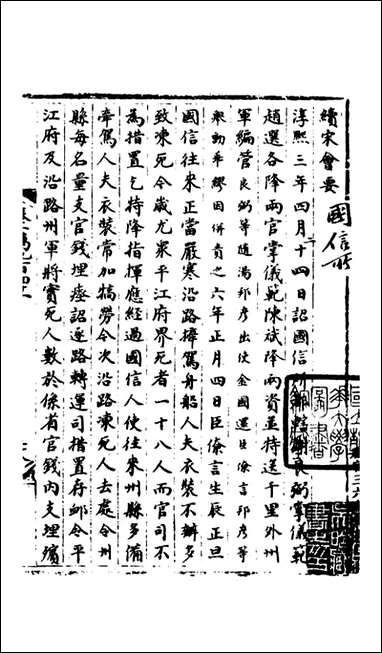 續宋會要
國信所
淳熙三年四月二十四日詔國信所都轄謝良弼掌儀範
趙選各降兩官掌儀範陳斌降兩資並持送千里外州
軍編管良弼等隨湯邦彥出使金國還臣僚言邦彥等
舉動乖繆因併責之六年正月四日臣僚言生辰正旦
國信往來正當嚴寒沿路撑駕舟船人夫衣裝不辦多
致凍死今歲尤衆平江府界死者一十八人而官司不
為措置乞特降指揮應經過國信人使往來州縣多備
牽駕人夫衣裝常加犒勞令次沿路凍死人去處令州
縣每名量支官錢埋瘞詔逐路轉運司措置存邺令平
江府及沿路州軍將實死人數於係省官錢內支理殯